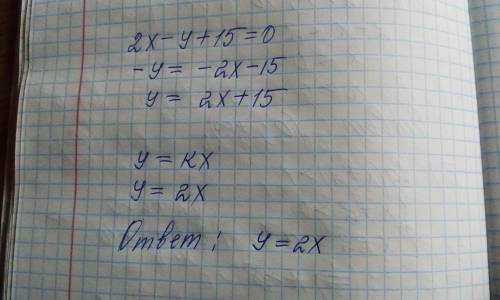 2x - y + 15 = 0
-y = -2x - 15
y = 2x + 15
y = кx
y = 2x
Ответ: y = 2x